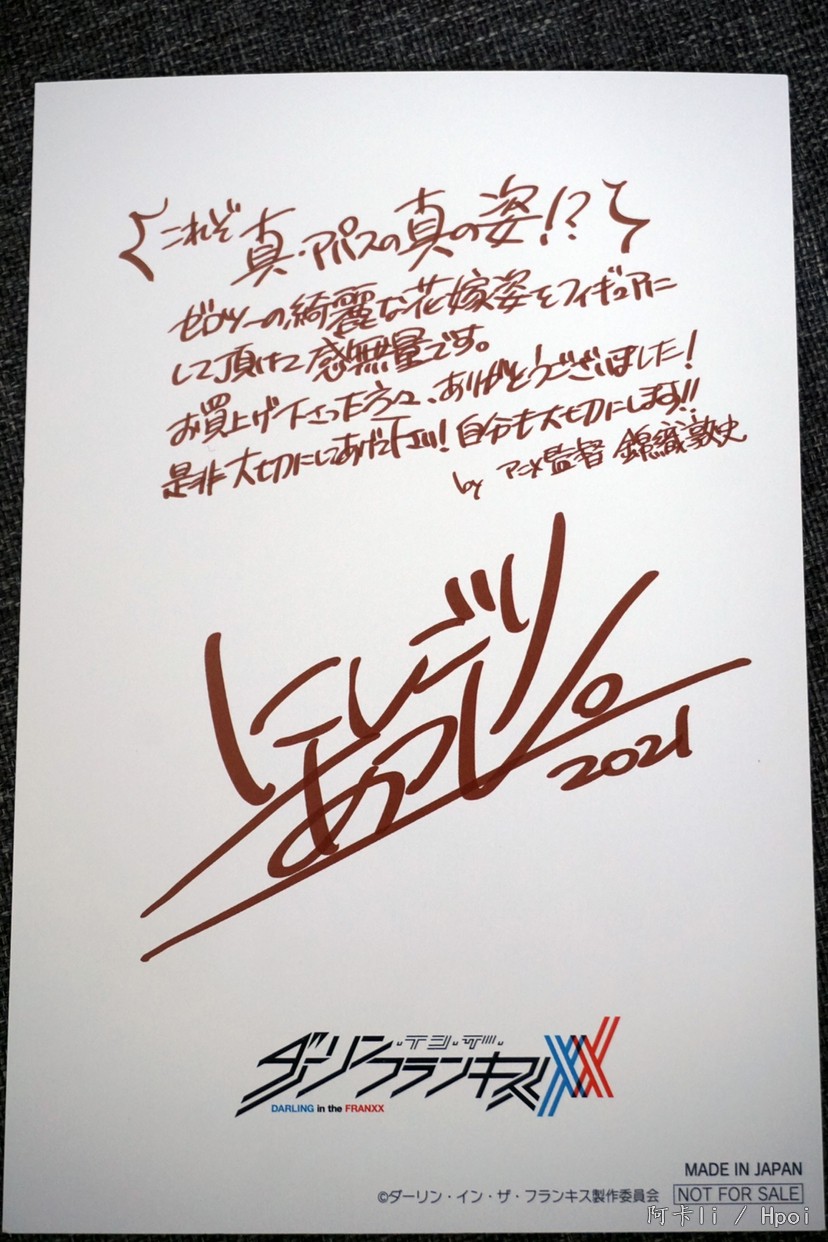 これぞ真・アパスの真の姿!?
ゼロツーの綺麗な花嫁姿をフィギュアに
して頂けて感無量です。
お買上げ下さった方々、ありがとうございました!
是非大切にしてあげて下さい!自分も大切にします!!
by アニメ監督 錦織敦史
にしごり
あつし。
2021
ダーリン・イン・ザ・
フランキス
DARLING in the FRANXX
MADE IN JAPAN
©ダーリン・イン・ザ・フランキス製作委員会 NOT FOR SALE
阿卡li / Hpoi